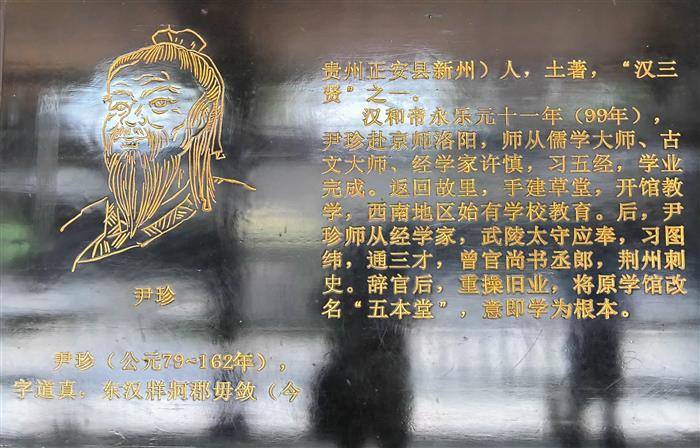 尹珍
尹珍（公元79~162年），
字道真，东汉牂牁郡毋敛（今
贵州正安县新州）人，土著，“汉三
贤”之一。
汉和帝永乐元十一年（99年），
尹珍赴京师洛阳，师从儒学大师、古
文大师、经学家许慎，习五经，学业
完成。返回故里，手建草堂，开馆教
学，西南地区始有学校教育。后，尹
珍师从经学家，武陵太守应奉，习图
纬，通三才，曾官尚书丞郎，荆州刺
史。辞官后，重操旧业，将原学馆改
名“五本堂”，意即学为根本。